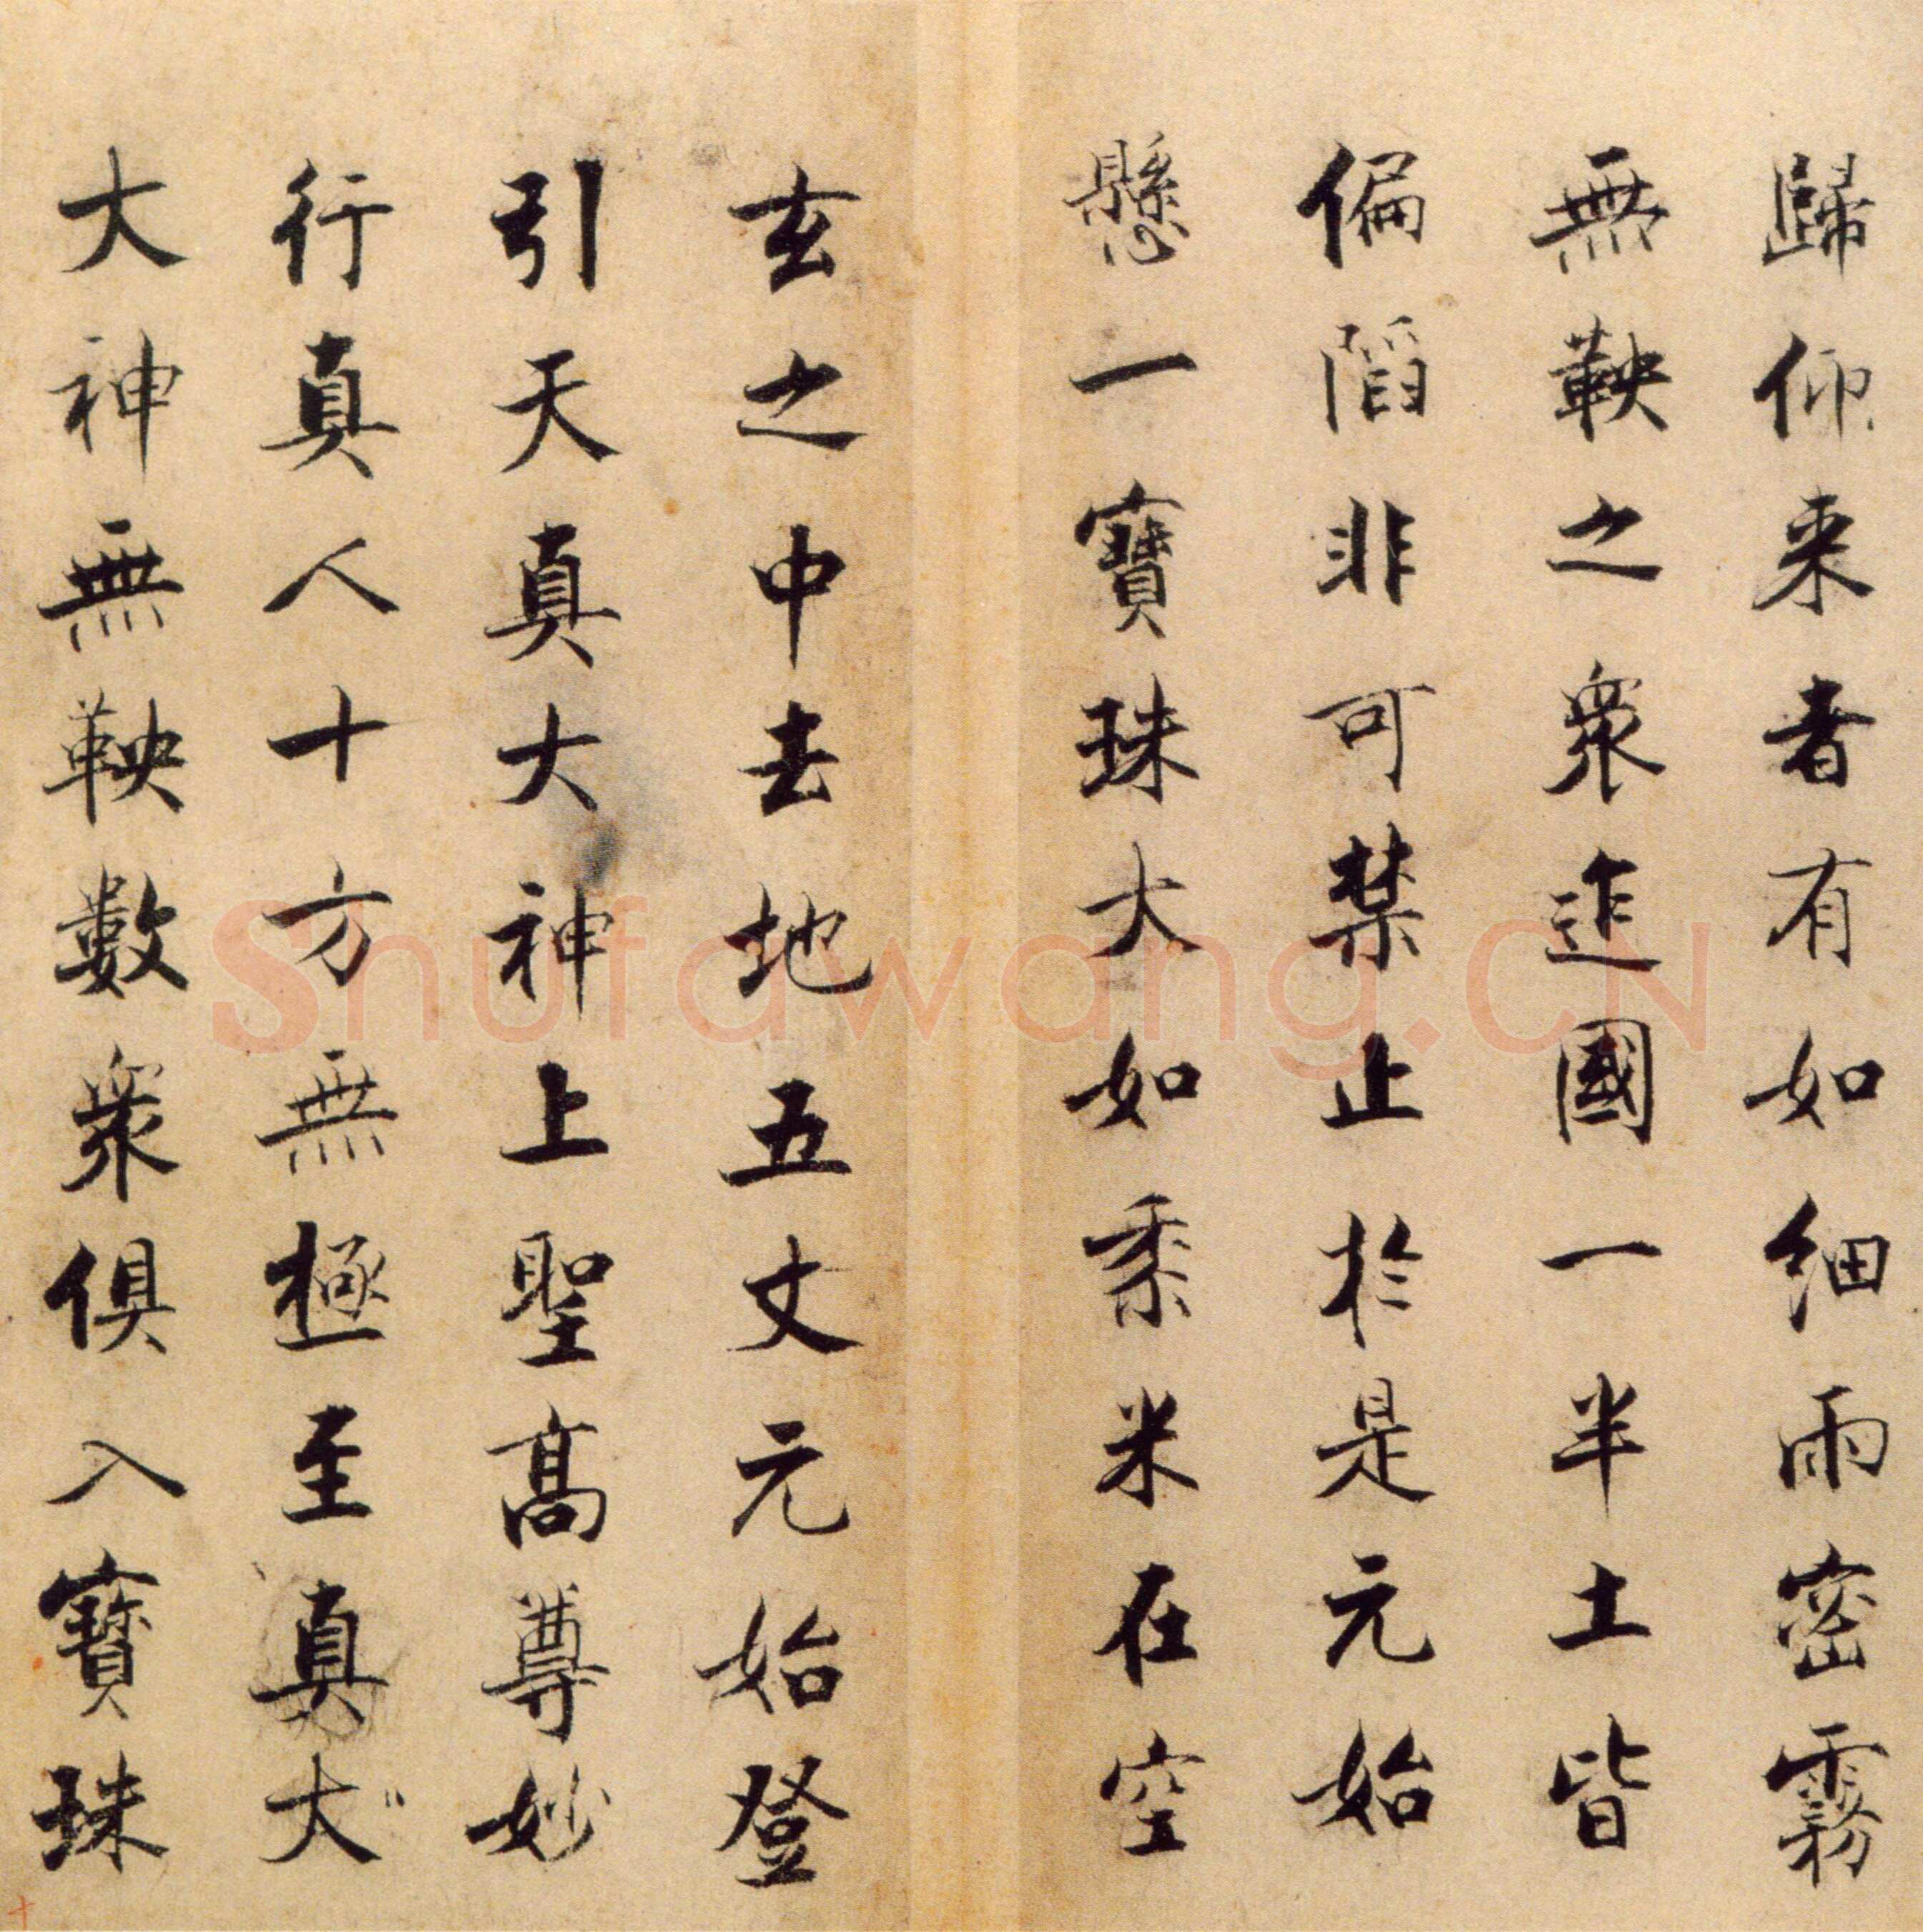 歸仰来者有如細雨密霧
無鞅之衆迮國一半土皆
偏陷非可禁止於是元始
懸一寶珠大如黍米在空
玄之中去地五丈元始登
引天真大神上聖髙尊妙
行真人十方無極至真大
大神無鞅數衆俱入寶珠
Shufawang.CN